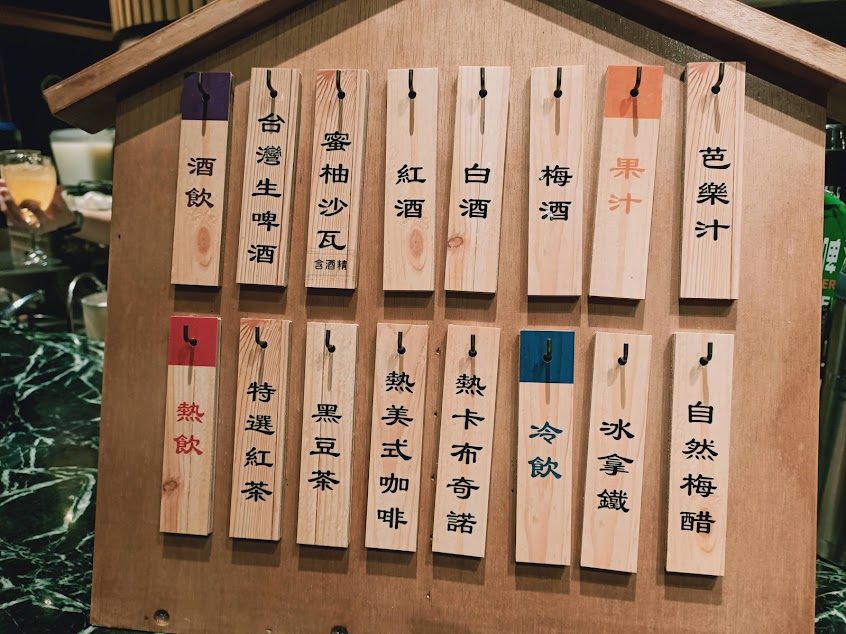 酒飲
台灣生啤酒
蜜柚沙瓦
含酒精
紅酒
白酒
梅酒
果汁
芭樂汁
熱飲
特選紅茶
黑豆茶
熱美式咖啡
熱卡布奇諾
冷飲
冰拿鐵
自然梅醋
啤
ER